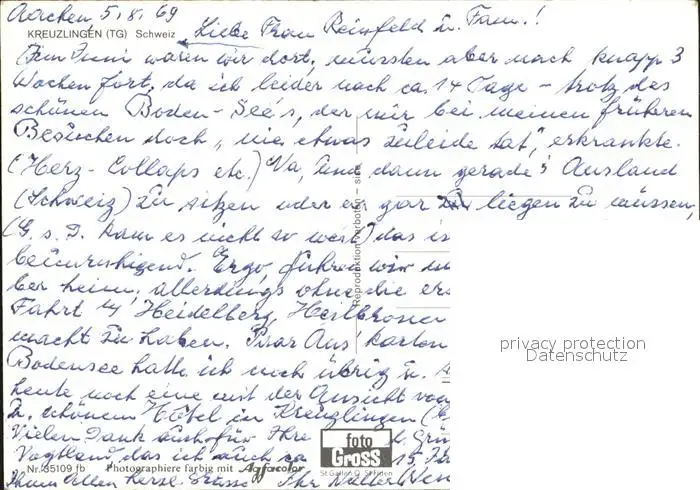 Aachen 5.8.69
KREUZLINGEN (TG) Schweiz
Liebe Frau Reinsfeld u. Fam.!
Im Juni waren wir dort, mussten aber nach knapp 3
Wochen fort, da ich leider nach ca. 14 Tage - trotz des
schönen Boden-See's, der mir bei meinen früheren
Besuchen doch "nie etwas zuleide tat", erkrankte.
(Herz-Collaps etc.) Na, und dann gerade i. Ausland
(Schweiz) zu sitzen oder gar zu liegen zu müssen,
(G.s.D. kam es nicht so weit) das is
beunruhigend. Ergo, fuhren wir
ber heim, allerdings ohne die
Fahrt Heidelberg, Heilbronn
macht zu haben. Paar Ans'karten
Bodensee hatte ich noch übrig u.
heute noch eine mit der Ansicht von
u. schönem Hotel in Kreuzlingen
Vielen Dank auch für Ihre Grü
Vogtland, das ich auch ca. 15
Ihnen Allen herzl. Grüsse Ihr Walter
Reproduktion verboten
privacy protection
Datenschutz
foto
Gross
St. Gallen
Nr. 35109 fb Photographiere farbig mit Agfacolor